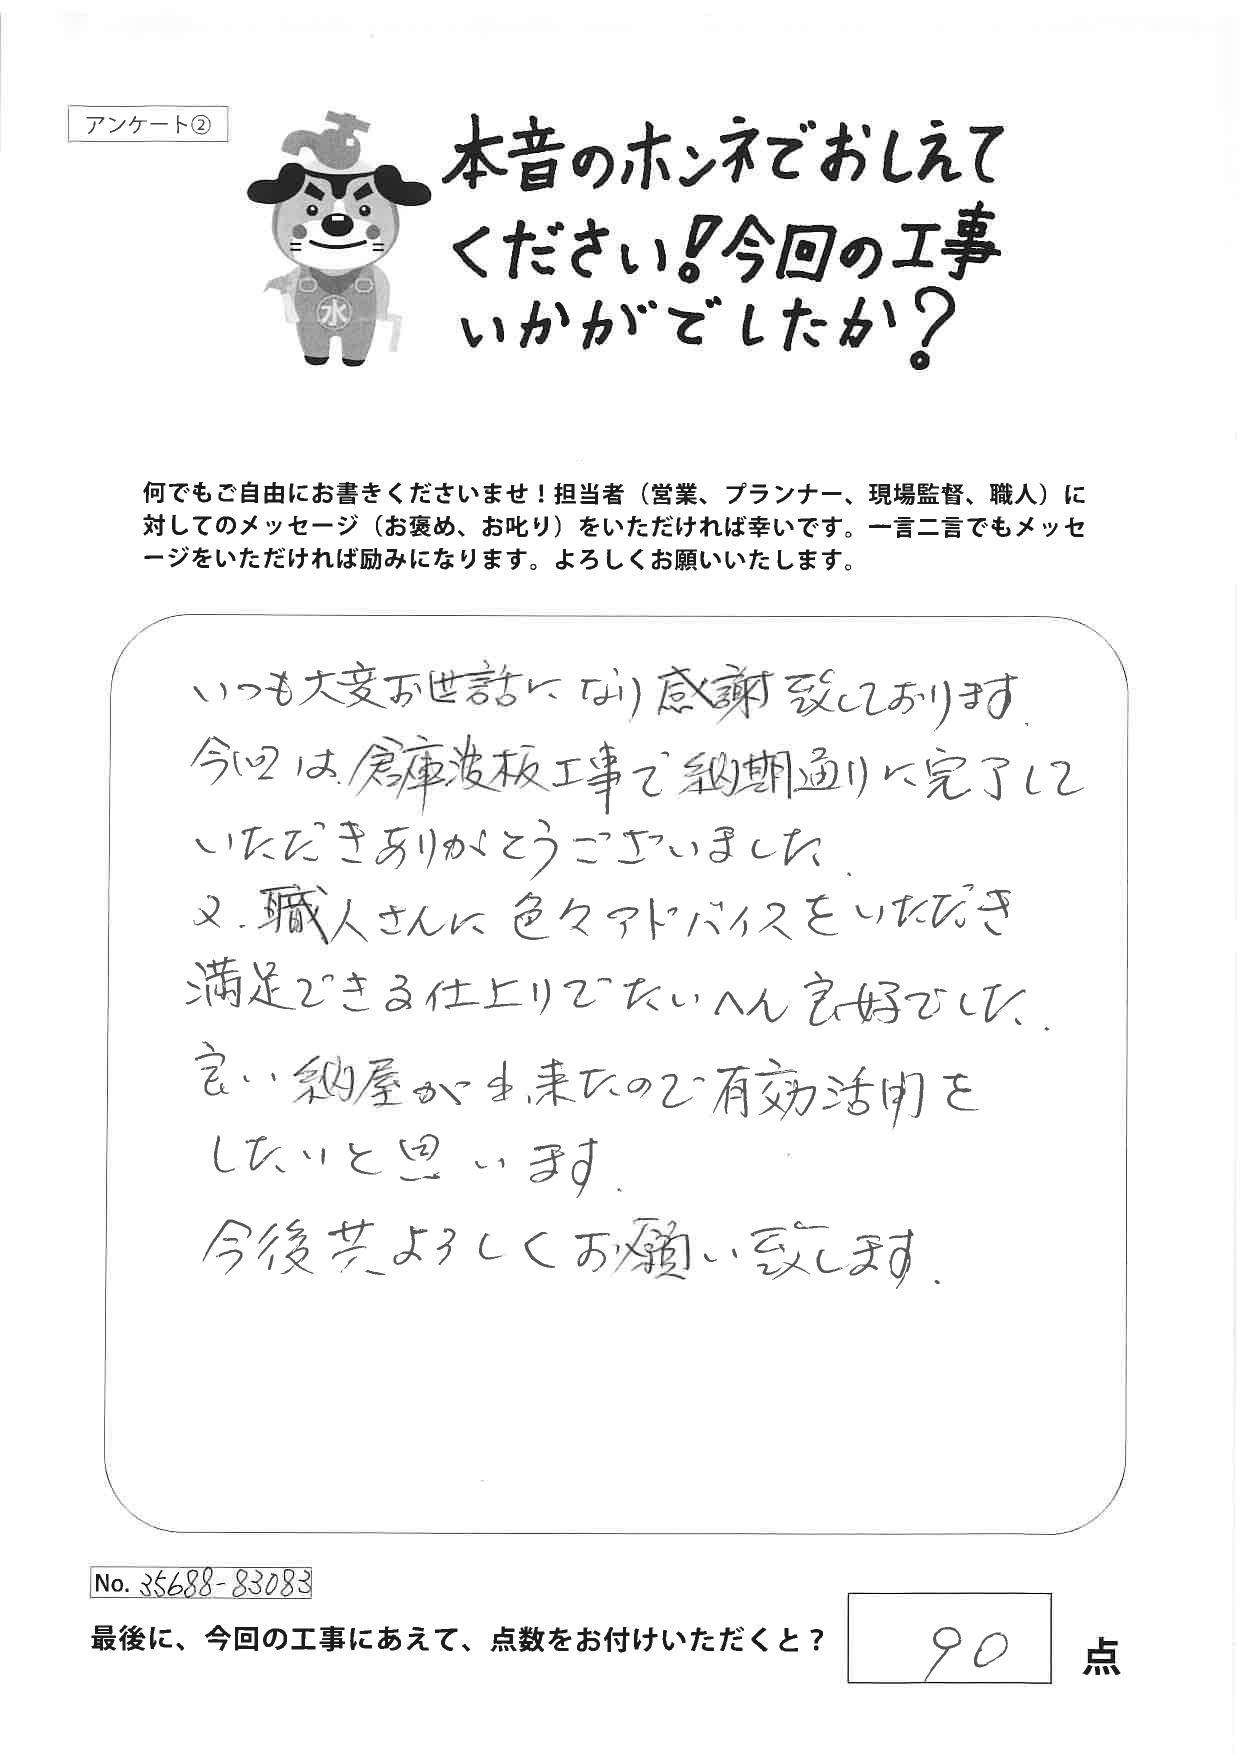 アンケート②
本音のホンネでおしえて
ください!今回の工事
いかがでしたか?
水
何でもご自由にお書きくださいませ!担当者(営業、プランナー、現場監督、職人)に
対してのメッセージ(お褒め、お叱り)をいただければ幸いです。一言二言でもメッセ
ージをいただければ励みになります。よろしくお願いいたします。
いつも大変お世話になり感謝致しております.
今回は倉庫波板工事で納期通りに完了して
いただきありがとうございました.
又.職人さんに色々アドバイスをいただき
満足できる仕上りでたいへん良好でした.
良い納屋が出来たので有効活用を
したいと思います.
今後共よろしくお願い致します.
No. 35688-83083
最後に、今回の工事にあえて、点数をお付けいただくと?
90 点